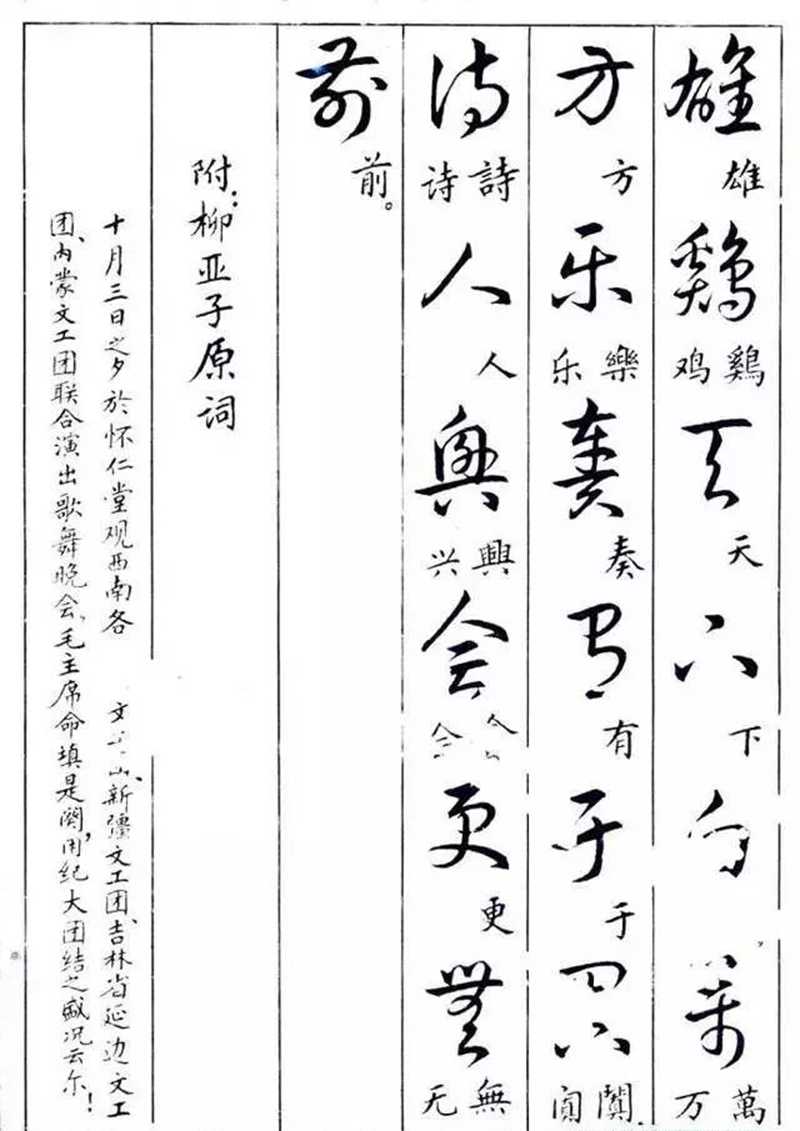 雄 雄 鷄 鷄 鸡 天 天 下 下 白 萬 萬 万
方 方 乐 樂 乐 奏 奏 有 有 于 于 阗 闐 阗
诗 詩 诗 人 人 興 興 兴 会 更 更 無 無 无
前 前。
附：柳亚子原词
十月三日之夕於怀仁堂观西南各 文 、新疆文工团、吉林省延边文工
团、内蒙文工团联合演出歌舞晚会、毛主席命填是阕，用纪大团结之盛况云尔！